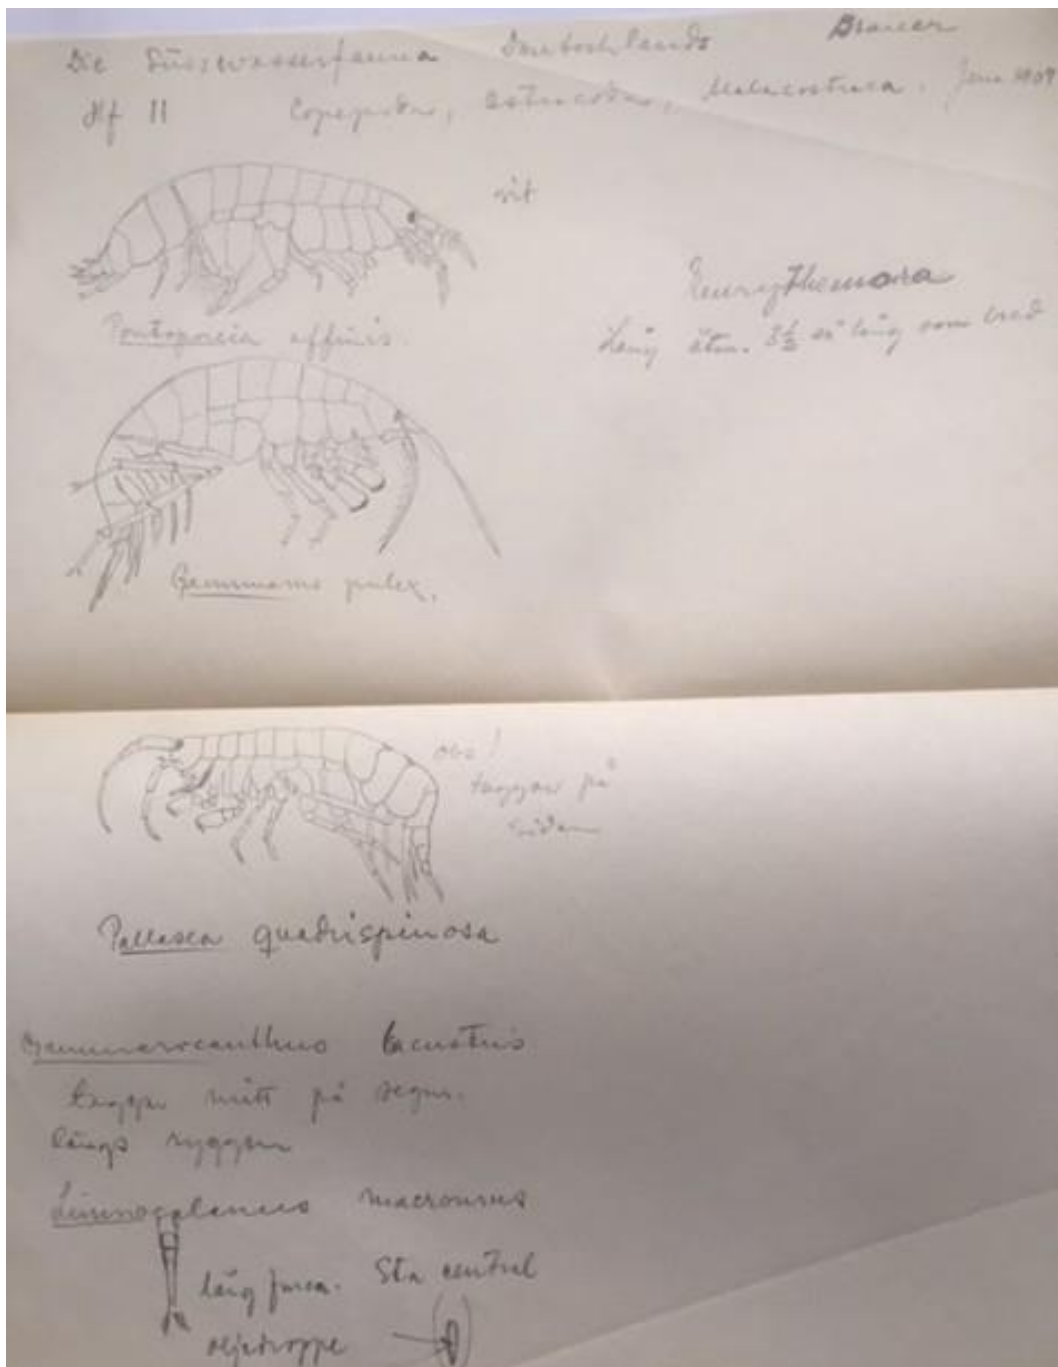 Die Süsswasserfauna Deutschlands Brauer
Hf 11 Copepoda, Ostracoda, Malacostraca. Jena 1909
vit
Pontoporeia affinis.
Eurythemora
Lång 3½ så lång som bred
Gammarus pulex.
obs!
taggar på
sidan
Pallasea quadrispinosa
Gammaracanthus lacustris
taggar mitt på segm.
längs ryggen
Limnocalanus macrurus
lång furca. Stn central
oljedroppe